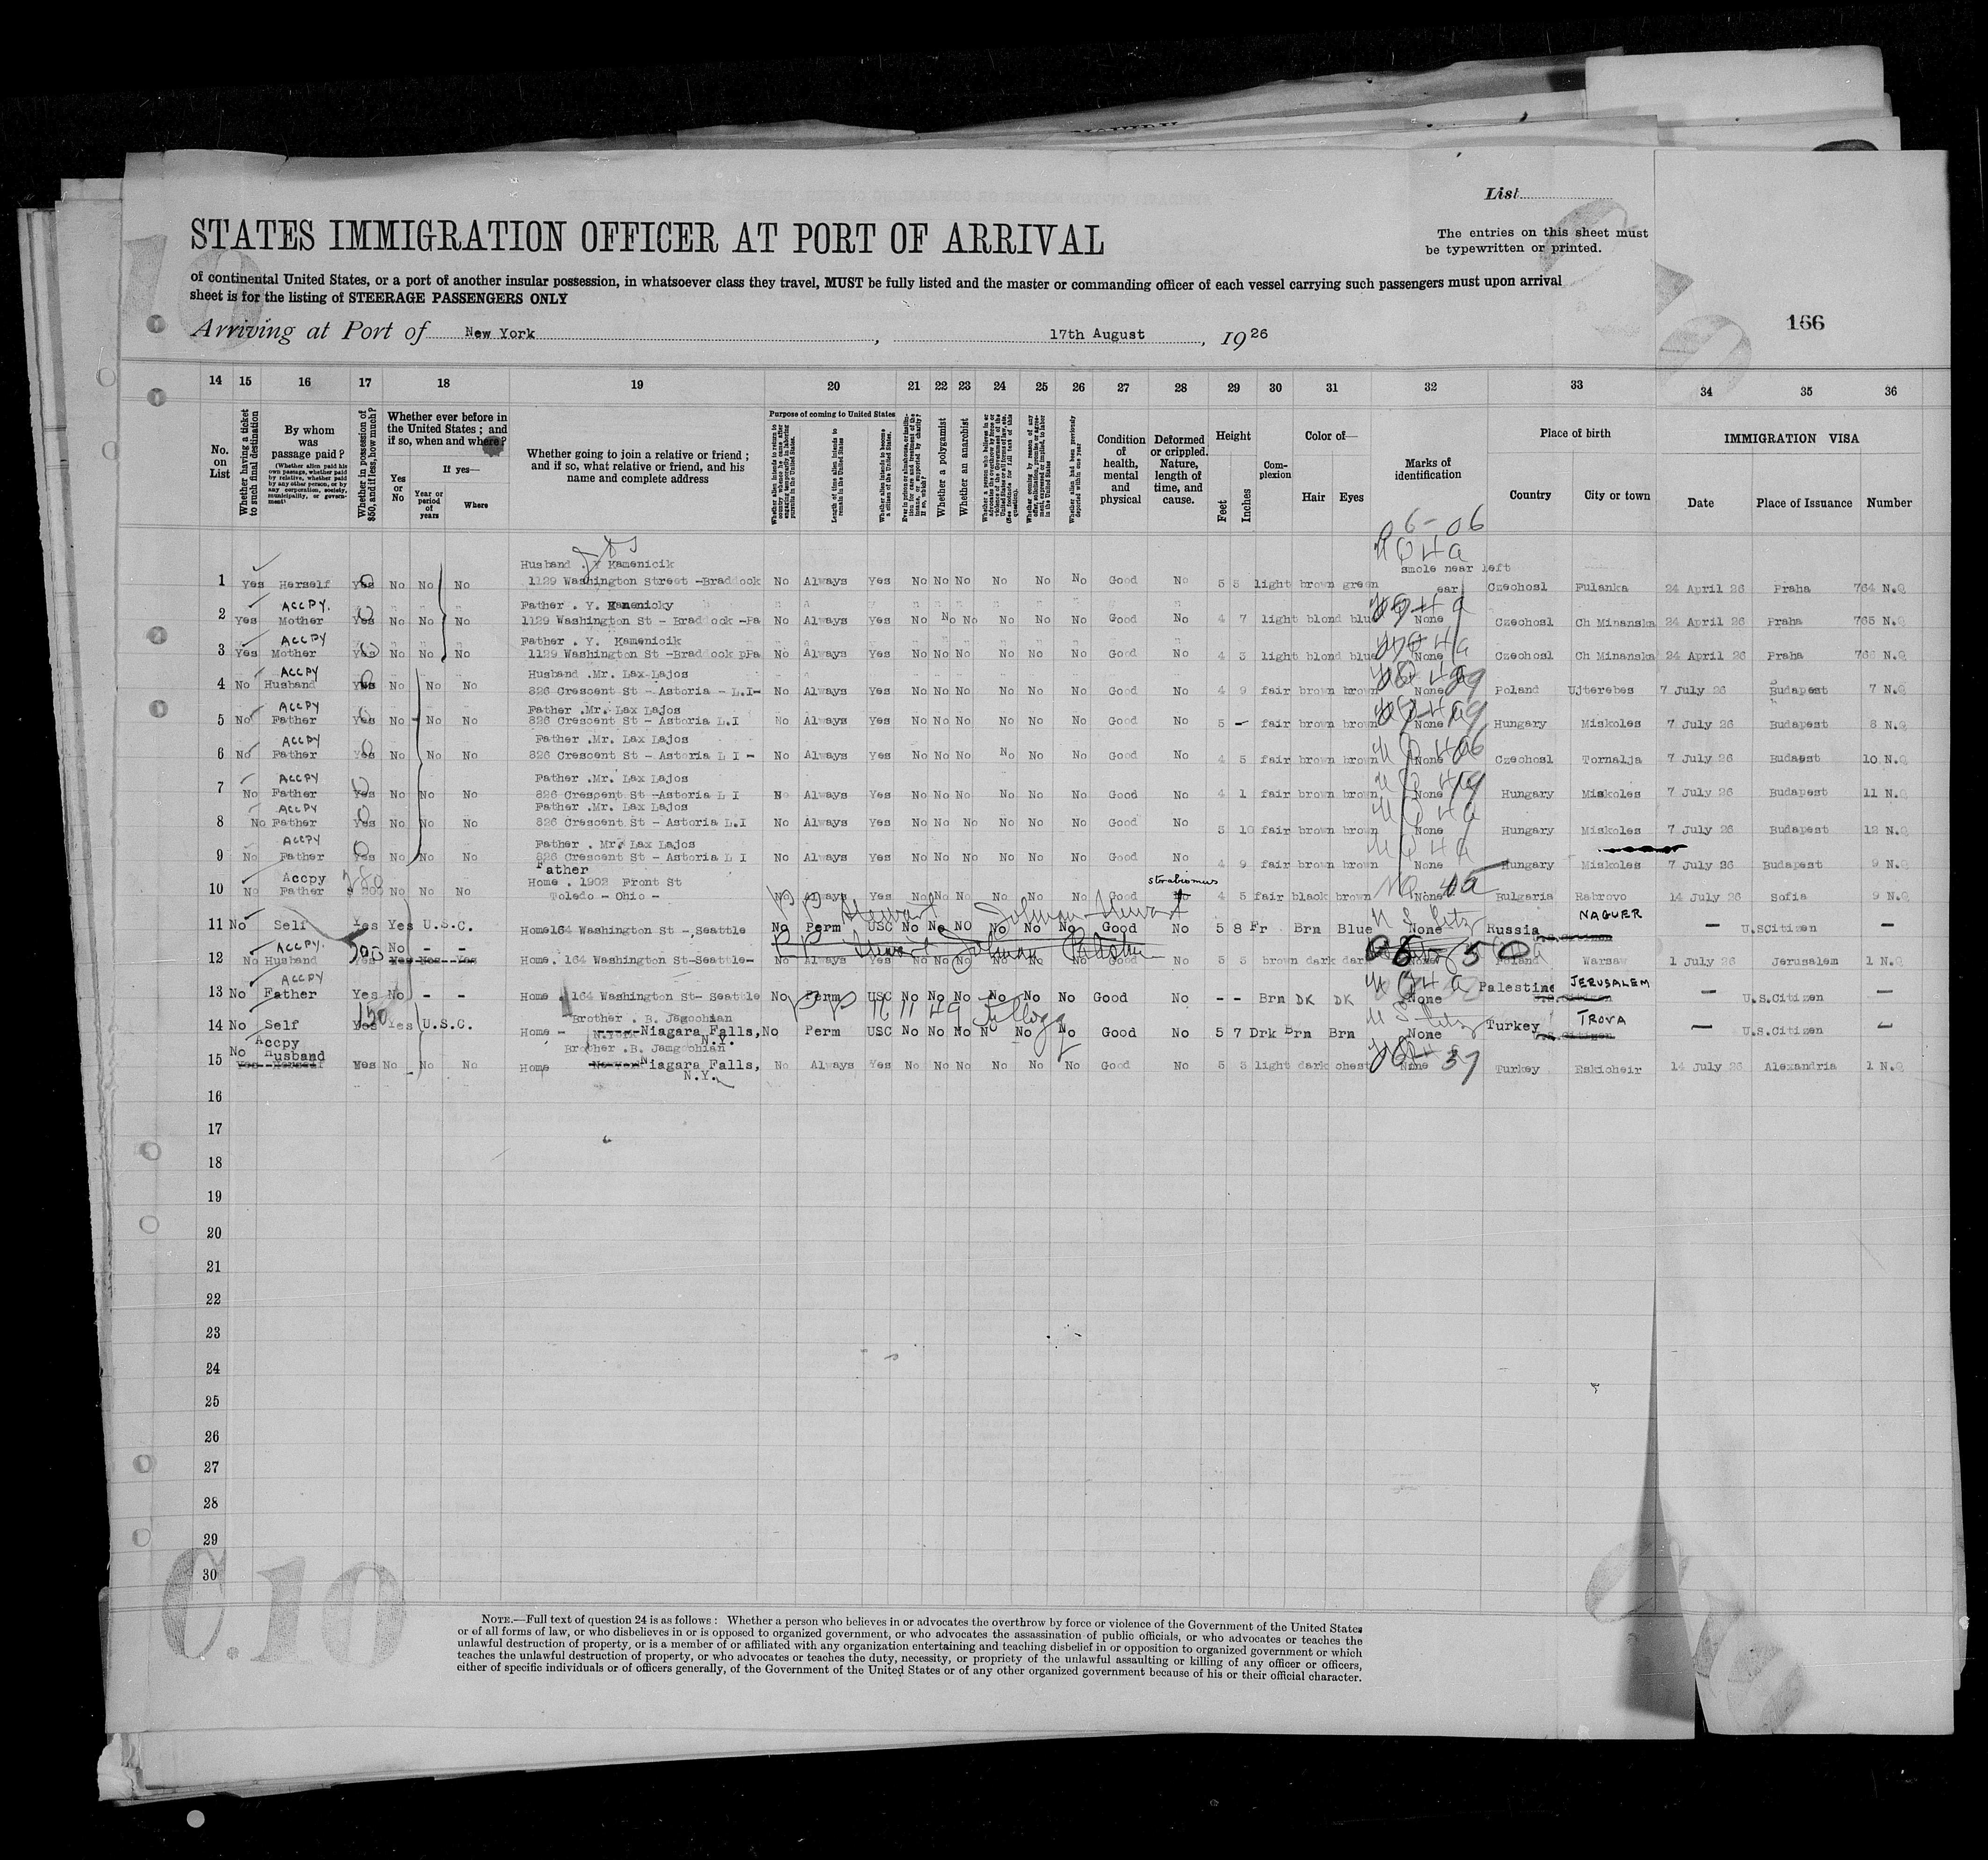 List
STATES IMMIGRATION OFFICER AT PORT OF ARRIVAL
The entries on this sheet must
be typewritten or printed.
of continental United States, or a port of another insular possession, in whatsoever class they travel, MUST be fully listed and the master or commanding officer of each vessel carrying such passengers must upon arrival
sheet is for the listing of STEERAGE PASSENGERS ONLY
Arriving at Port of New York, 17th August, 1926
166
14 15 16 17 18 19 20 21 22 23 24 25 26 27 28 29 30 31 32 33 34 35 36
No. on List
Whether having a ticket to such final destination
By whom was passage paid?
(Whether alien paid his own passage, whether paid by relative, whether paid by any other person, or by any corporation, society, municipality, or government)
Whether in possession of $50, and if less, how much?
Whether ever before in the United States; and if so, when and where?
Yes or No
If yes—
Year or period of years
Where
Whether going to join a relative or friend; and if so, what relative or friend, and his name and complete address
Purpose of coming to United States
Length of time alien intends to remain in the United States
Whether alien intends to become a citizen of the United States
Whether a polygamist
Whether an anarchist
Whether alien had been previously deported within one year
Condition of health, mental and physical
Deformed or crippled. Nature, length of time, and cause.
Height
Feet Inches
Complexion
Color of—
Hair Eyes
Marks of identification
Place of birth
Country City or town
IMMIGRATION VISA
Date Place of Issuance Number
Husband . Y Kamenicik smole near left
1 Yes Herself Yes No No No 1129 Washington Street -Braddock No Always Yes No No No No No No Good No 5 5 light brown green ear Czechosl Fulanka 24 April 26 Praha 764 N.Q
ACCPY. Father . Y. Kamenicky
2 Yes Mother Yes No No No 1129 Washington St - Braddock -Pa No Always Yes No No No No No No Good No 4 7 light blond blue None Czechosl Ch Minanska 24 April 26 Praha 765 N.Q
ACCPY Father . Y. Kamenicik
3 Yes Mother Yes No No No 1129 Washington St -Braddock pPa No Always Yes No No No No No No Good No 4 3 light blond blue None Czechosl Ch Minanska 24 April 26 Praha N.Q
ACCPY Husband .Mr. Lax Lajos
4 No Husband Yes No No No 826 Crescent St - Astoria - L.I- No Always Yes No No No No No No Good No 4 9 fair brown brown None Poland Ujterebes 7 July 26 Budapest 7 N.Q
ACCPY Father .Mr. Lax Lajos
5 No Father Yes No No No 826 Crescent St - Astoria L.I No Always Yes No No No No No No Good No 5 - fair brown brown None Hungary Miskoles 7 July 26 Budapest 8 N.Q
ACCPY Father .Mr. Lax Lajos
6 No Father Yes No No No 826 Crescent St - Astoria L I - No Always Yes No No No No No No Good No 4 5 fair brown brown None Czechosl Tornalja 7 July 26 Budapest 10 N.Q
ACCPY Father .Mr. Lax Lajos
7 No Father Yes No No No 826 Crescent St -Astoria L I No Always Yes No No No No No No Good No 4 1 fair brown brown None Hungary Miskoles 7 July 26 Budapest 11 N.Q
ACCPY Father .Mr. Lax Lajos
8 No Father Yes No No No 826 Crescent St - Astoria L.I No Always Yes No No No No No No Good No 3 10 fair brown brown None Hungary Miskoles 7 July 26 Budapest 12 N.Q
ACCPY Father . Mr. Lax Lajos
9 No Father Yes No No No 826 Crescent St - Astoria L I No Always Yes No No No No No No Good No 4 9 fair brown brown None Hungary Miskoles 7 July 26 Budapest 9 N.Q
Father
Accpy Home . 1902 Front St strabismus
10 No Father No No No Toledo - Ohio - No Always Yes No No No No No No Good No 4 5 fair black brown None Bulgaria Rabrovo 14 July 26 Sofia 9 N.Q
NAGUER
11 No Self Yes Yes U.S.C. Home164 Washington St -,Seattle No Perm USC No No NO No No No Good No 5 8 Fr Brn Blue None Russia — U.SCitizen —
ACCPY. No - -
12 No Husband Yes Home. 164 Washington St-Seattle- No Always Yes No No No No No No Good No 5 5 brown dark dar None Poland Warsaw 1 July 26 Jerusalem 1 N.Q
ACCPY JERUSALEM
13 No Father Yes No - - Home . 164 Washington St- Seattle No Perm USC No No No No No No Good No - - Brn DK DK None Palestine — U.S.Citizen
150 Brother . B. Jagochian TROVA
14 No Self Yes Yes U.S.C. Home - Niagara Falls, N.Y. No Perm USC No No No N No No Good No 5 7 Drk Brn Brn None Turkey — U.S.Citizen —
Accpy Brother .B. Jamgochian
15 No Husband Yes No No No Home Niagara Falls, N.Y. No Always Yes No No No No No No Good No 5 3 light dark chest None Turkey Eskicheir 14 July 26 Alexandria 1 N.Q
16
17
18
19
20
21
22
23
24
25
26
27
28
29
30
C.10
NOTE.—Full text of question 24 is as follows: Whether a person who believes in or advocates the overthrow by force or violence of the Government of the United States
or of all forms of law, or who disbelieves in or is opposed to organized government, or who advocates the assassination of public officials, or who advocates or teaches the
unlawful destruction of property, or is a member of or affiliated with any organization entertaining and teaching disbelief in or opposition to organized government or which
teaches the unlawful destruction of property, or who advocates or teaches the duty, necessity, or propriety of the unlawful assaulting or killing of any officer or officers,
either of specific individuals or of officers generally, of the Government of the United States or of any other organized government because of his or their official character.